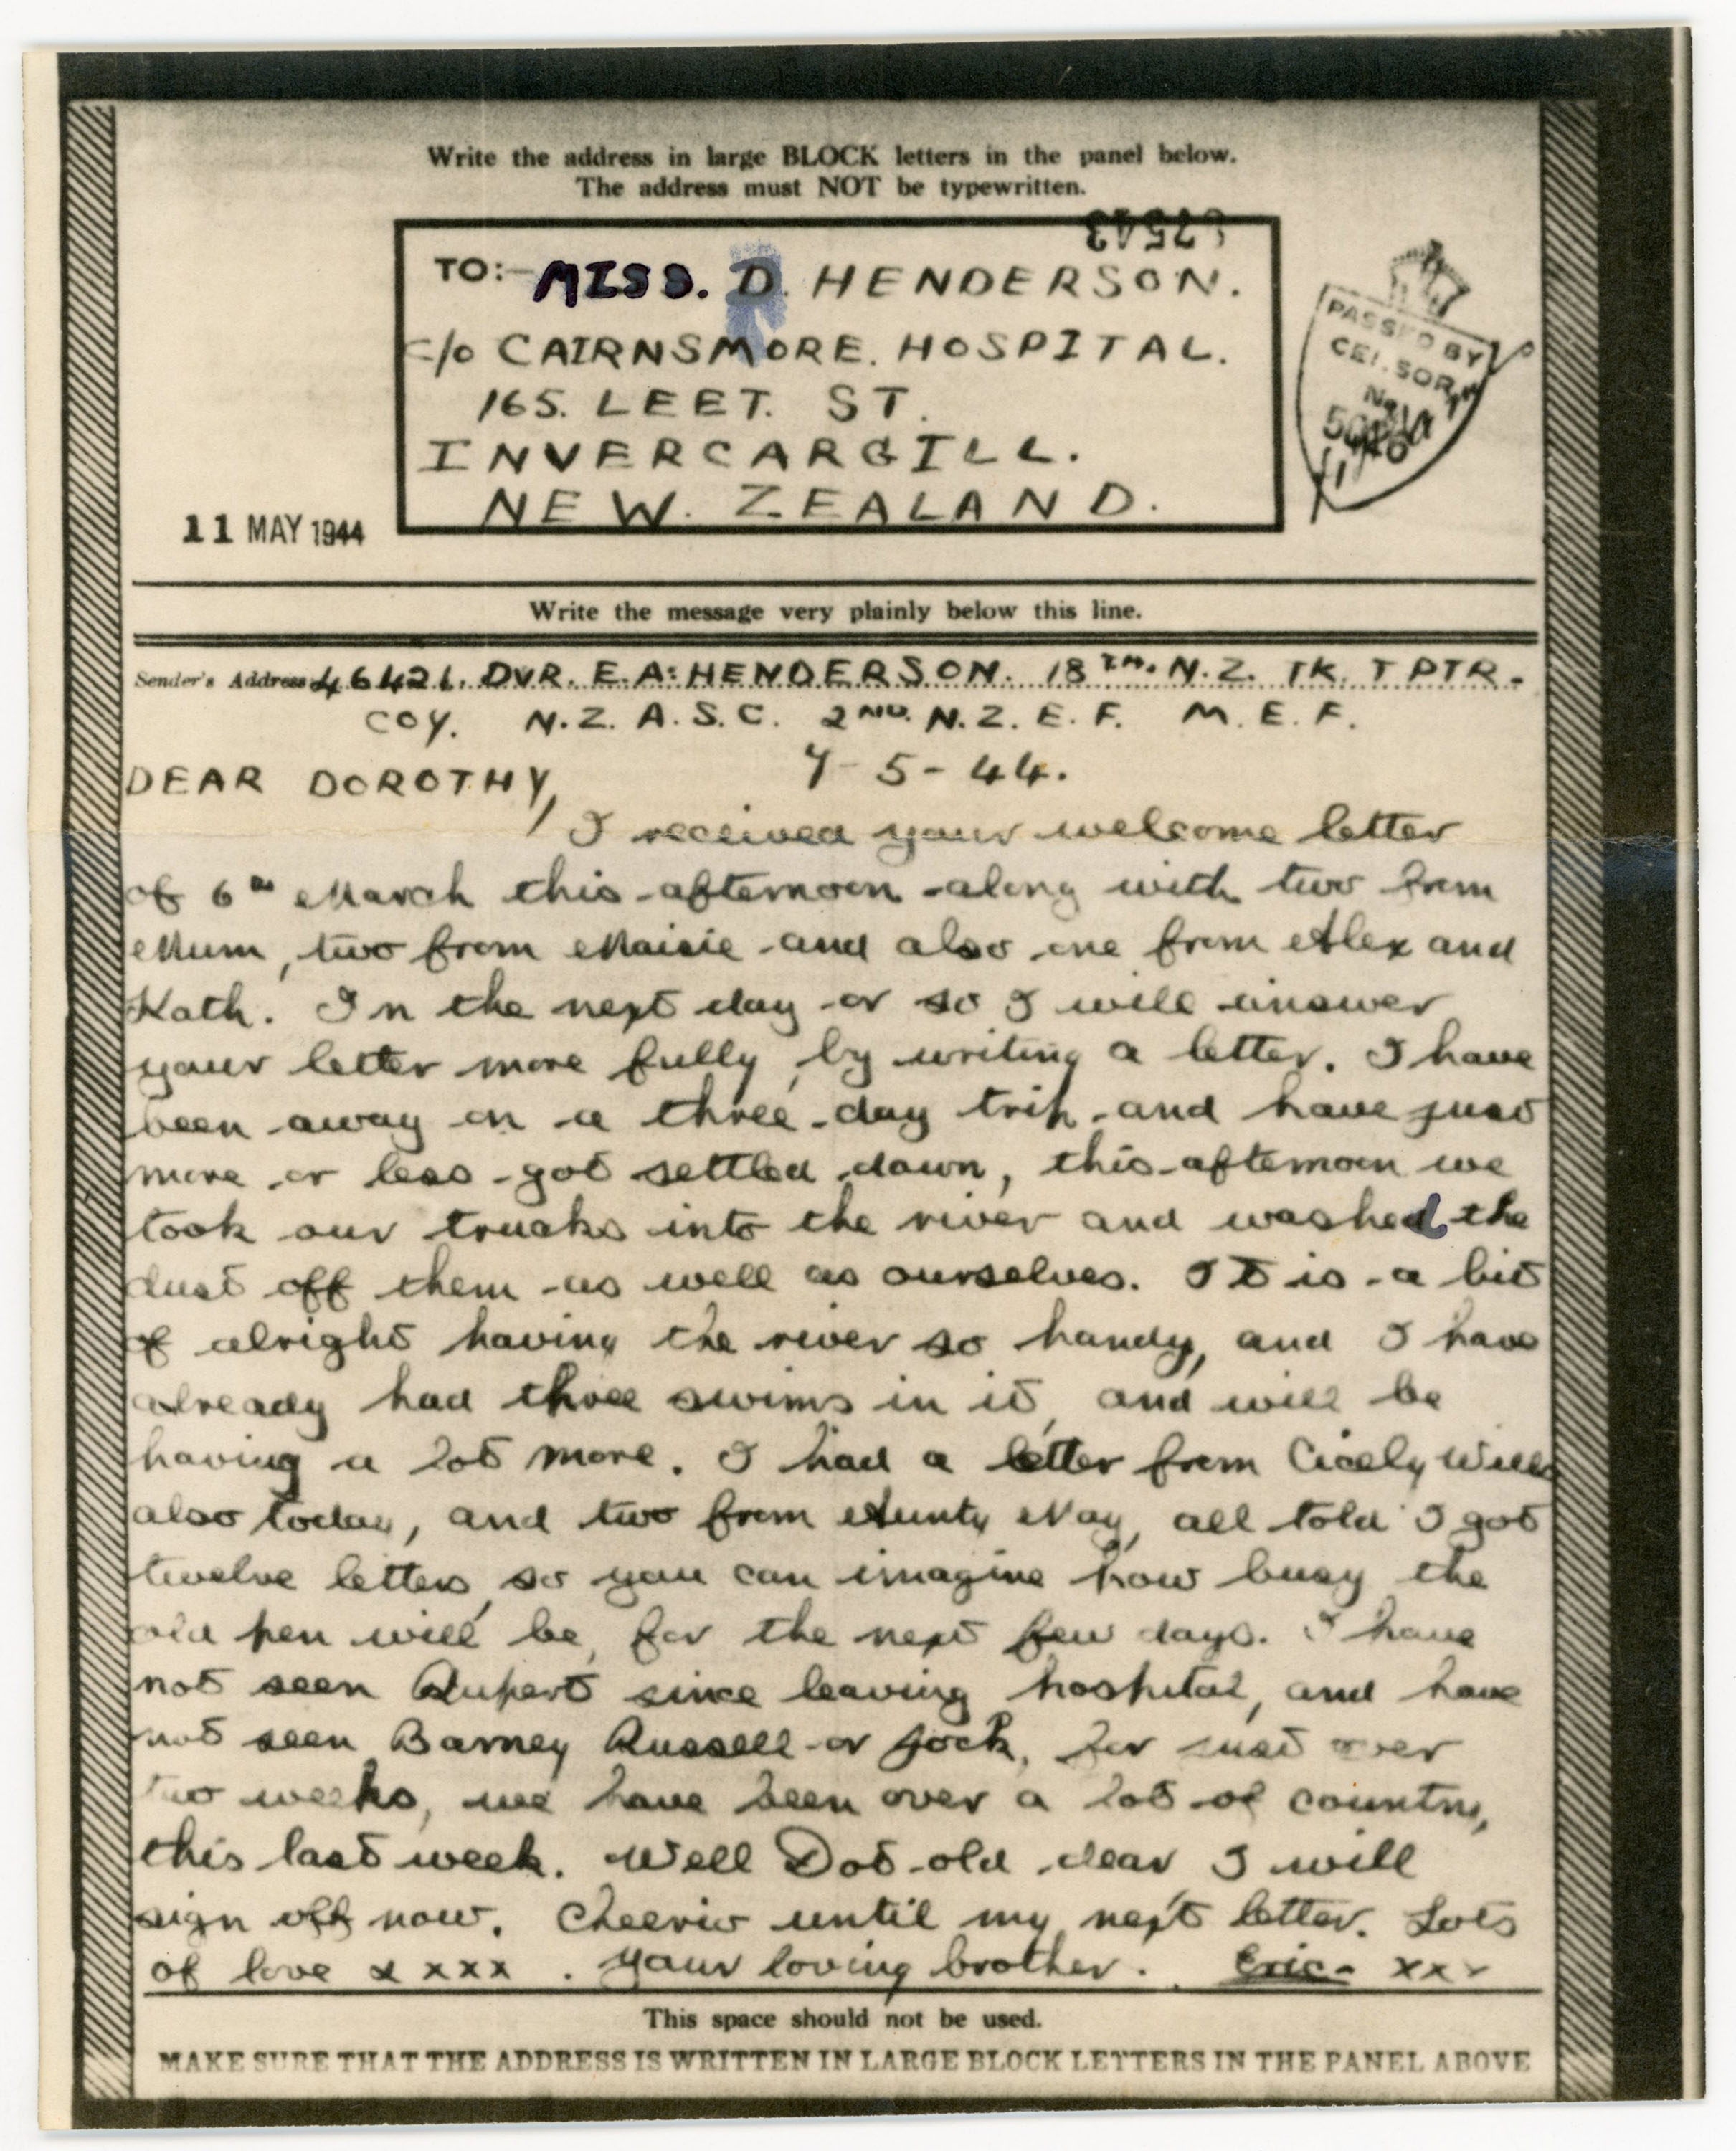 Write the address in large BLOCK letters in the panel below.
The address must NOT be typewritten.
TO:- MISS. D. HENDERSON.
c/o CAIRNSMORE. HOSPITAL.
165. LEET. ST.
INVERCARGILL.
NEW. ZEALAND.
PASSED BY
CENSOR
No
11 MAY 1944
Write the message very plainly below this line.
Sender's Address 46421. DVR. E.A. HENDERSON. 18TH. N.Z. TK. TPTR.
COY. N.Z.A.S.C. 2ND. N.Z.E.F. M.E.F.
DEAR DOROTHY, 7-5-44.
I received your welcome letter
of 6th March this afternoon along with two from
Mum, two from Maisie and also one from Alex and
Kath. In the next day or so I will answer
your letter more fully, by writing a letter. I have
been away on a three day trip and have just
more or less got settled down, this afternoon we
took our trucks into the river and washed the
dust off them as well as ourselves. It is a bit
of alright having the river so handy, and I have
already had three swims in it, and will be
having a lot more. I had a letter from Cicely Wills
also today, and two from Aunty May, all told I got
twelve letters, so you can imagine how busy the
old pen will be, for the next few days. I have
not seen Rupert since leaving hospital, and have
not seen Barney Russell or Jock, for just over
two weeks, we have been over a lot of country,
this last week. Well Dot old dear I will
sign off now. Cheerio until my next letter. Lots
of love x xxx. Your loving brother. Eric. xxx
This space should not be used.
MAKE SURE THAT THE ADDRESS IS WRITTEN IN LARGE BLOCK LETTERS IN THE PANEL ABOVE